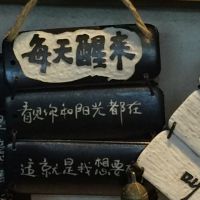 每天醒来
看见你和阳光都在
這就是我想要